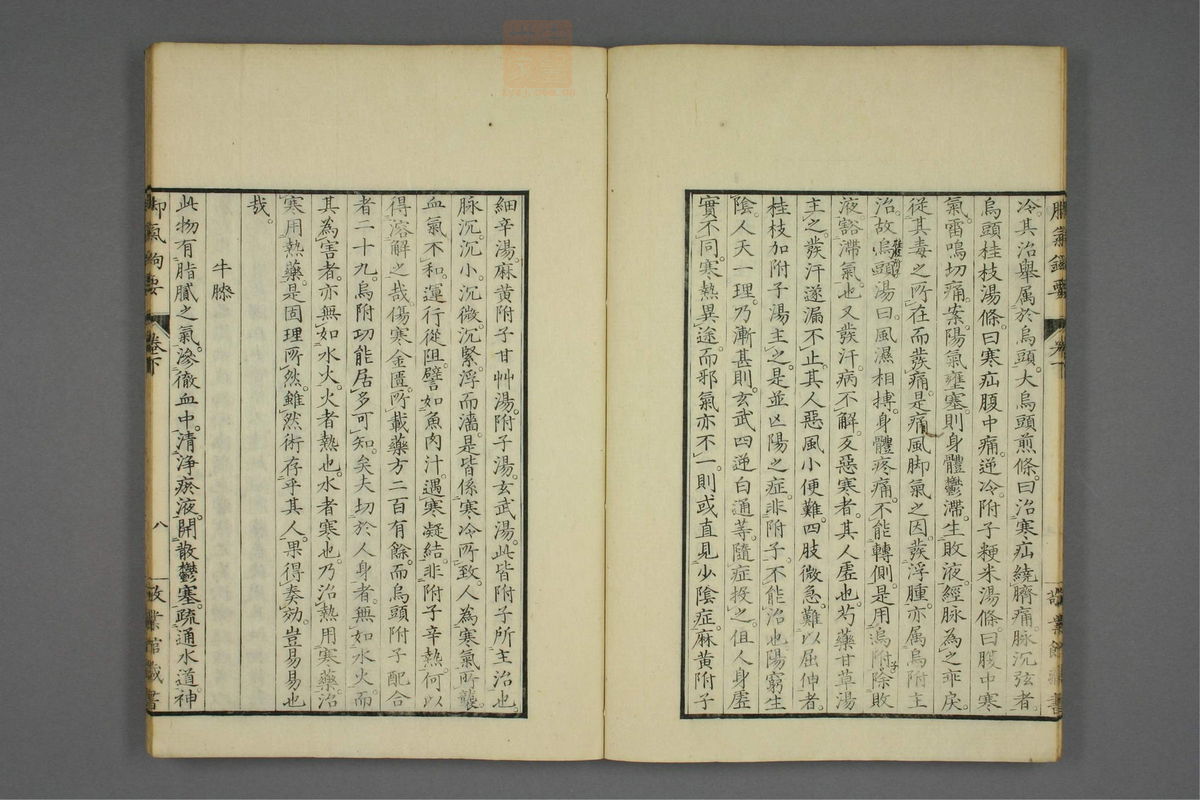 冷。其治舉属於烏頭。大烏頭煎條。曰治寒疝繞臍痛。脉沉弦者。
烏頭桂枝湯條。曰寒疝腹中痛。逆冷。附子粳米湯條。曰腹中寒
氣。雷鳴切痛。案。陽氣壅塞。則身體鬱滯。生敗液。經脉為之乖戾。
從其毒之所在而發痛。是痛風脚氣之因。發浮腫。亦属烏附主
治。故烏頭湯曰。風濕相摶。身體疼痛。不能轉側。是用烏附子除敗
液豁滯氣也。又發汗。病不解。反惡寒者。其人虛也。芍藥甘草湯
主之。發汗遂漏不止。其人惡風小便難。四肢微急。難以屈伸者。
桂枝加附子湯主之。是並亡陽之症。非附子不能治也。陽窮生
陰。人天一理。乃漸甚則。玄武四逆白通等。隨症投之。但人身虛
實不同。寒熱異途。而邪氣亦不一。則或直見少陰症。麻黄附子
細辛湯。麻黄附子甘艸湯。附子湯。玄武湯。此皆附子所主治也。
脉沉沉小。沉微。沉緊。浮而濇。是皆係寒冷所致。人為寒氣所襲。
血氣不和。運行從阻。譬如魚肉汁遇寒凝結。非附子辛熱何以
得溶解之哉。傷寒金匱所載藥方二百有餘。而烏頭附子配合
者二十九。烏附功能居多可知矣。夫切於人身者。無如水火。而
其為害者。亦無如水火。火者熱也。水者寒也。乃治熱用寒藥。治
寒用熱藥。是固理所然。雖然術存乎其人。果得奏効。豈易易也
哉。
牛膝
此物有脂膩之氣。滲徹血中。清浄瘀液。開散鬱塞。疏通水道。神
卷下
八